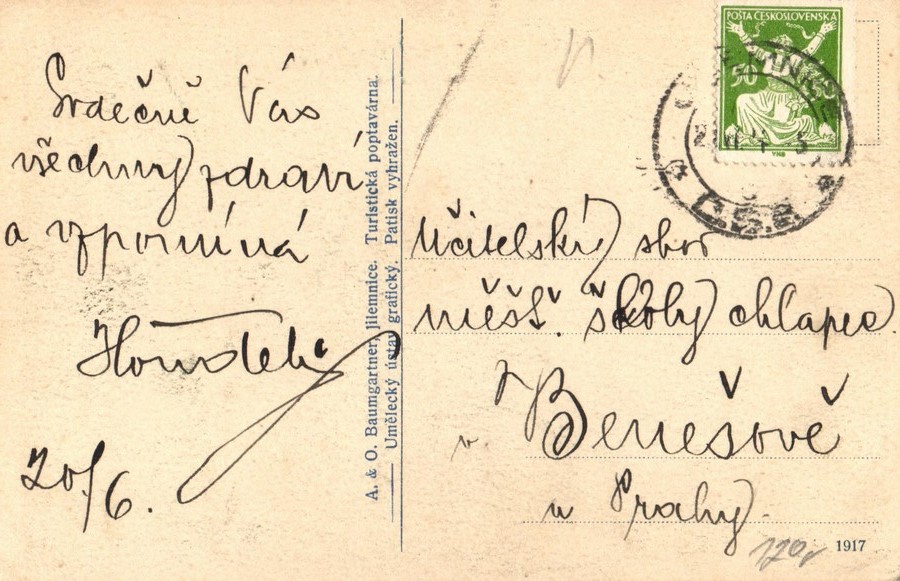 Srdečně Vás
všechny zdraví
a vzpomíná
20/6.
A. & O. Baumgartner, Jilemnice. Turistická poptavárna.
Umělecký ústav grafický. Patisk vyhražen.
POŠTA ČESKOSLOVENSKÁ
50
VHB
Č.S.R.
Učitelský sbor
měšť. školy chlapec.
v Benešově
v.
u Prahy.
120,
1917